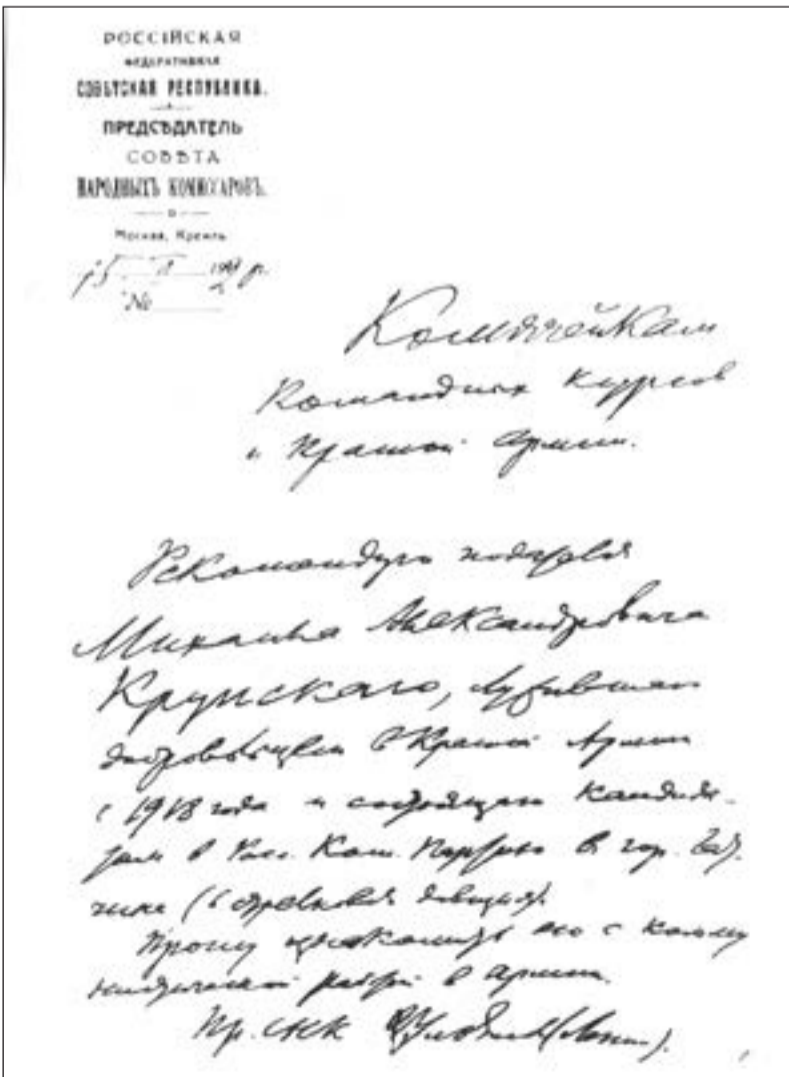 РОССІЙСКАЯ
ФЕДЕРАТИВНАЯ
СОВѢТСКАЯ РЕСПУБЛИКА.
ПРЕДСѢДАТЕЛЬ
СОВѢТА
НАРОДНЫХЪ КОМИССАРОВЪ.
Москва, Кремль
№
Комячейкам
Командных курсов
и Красной Армии.
Рекомендую подателя
Михаила Александровича
Крупскаго, служившаго
добровольцем в Красной Армии
с 1918 года и состоящаго кандида-
том в Росс. Ком. Партию в гор.
(6 стрелковая дивизия).
Прошу его с комму-
нистической работой в армии.
Пр. СНК В. Ульянов (Ленин).